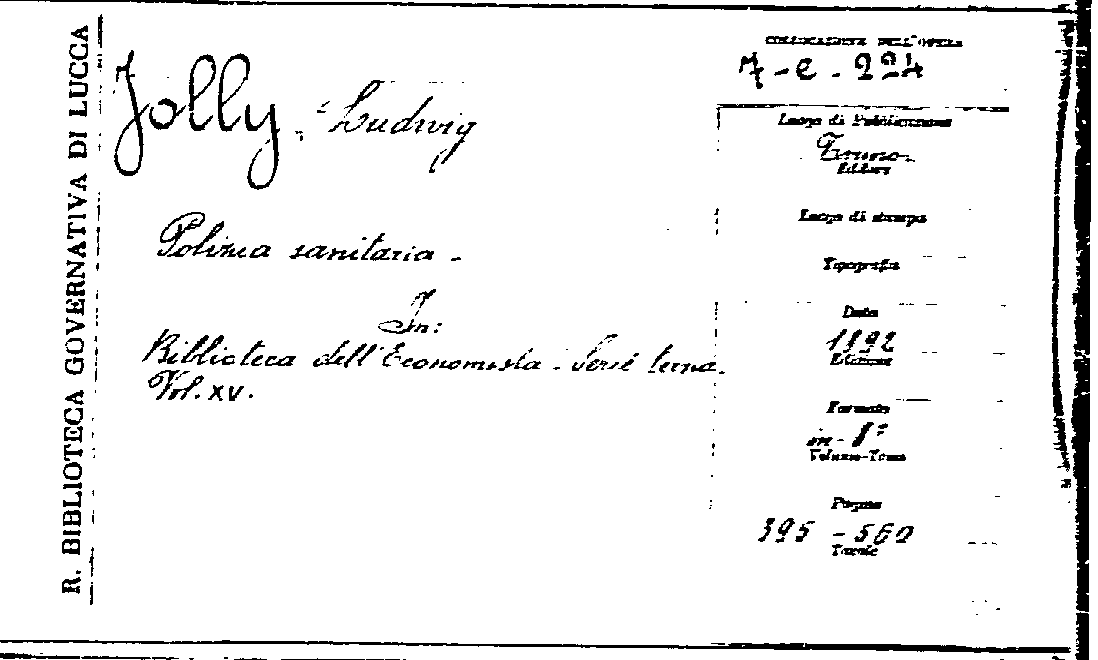 R. BIBLIOTECA GOVERNATIVA DI LUCCA
Jolly, Ludwig
Polizia sanitaria -
In:
Biblioteca dell'Economista - Serie terza.
Vol. XV.
COLLOCAZIONE DELL'OPERA
7-e-224
Luogo di Pubblicazione
Torino
Editore
Luogo di stampa
Tipografia
Data
1892
Edizione
Formato
in-8°
Volume-Tomo
Pagine
395 - 560
Tavole